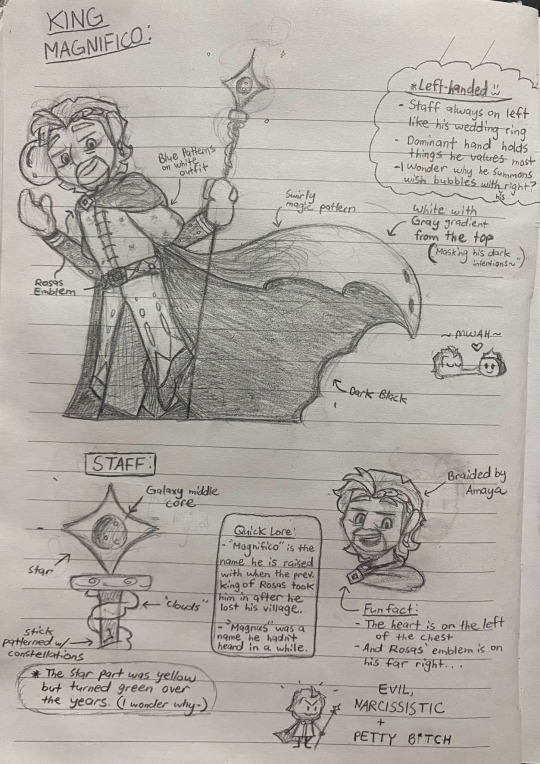 KING
MAGNIFICO:
* Left-handed
- Staff always on left
like his wedding ring
- Dominant hand holds
things he values most
- I wonder why he summons
wish bubbles with his right?
Blue Patterns
on white
outfit
Swirly
magic pattern
White with
Gray gradient
from the top
(Masking his dark
intentions~)
Rosas
Emblem
~ MWAH ~
Dark Black
STAFF:
Galaxy middle
core
Star
"clouds"
stick
patterned w/
constellations
* The star part was yellow
but turned green over
the years. (I wonder why-)
Quick Lore:
- "Magnifico" is the
name he is raised
with when the prev.
king of Rosas took
him in after he
lost his village..
- "Magnus" was a
name he hadn't
heard in a while.
Braided by
Amaya
Fun fact:
- The heart is on the left
of the chest
- And Rosas' emblem is on
his far right...
EVIL,
NARCISSISTIC
+
PETTY B*TCH